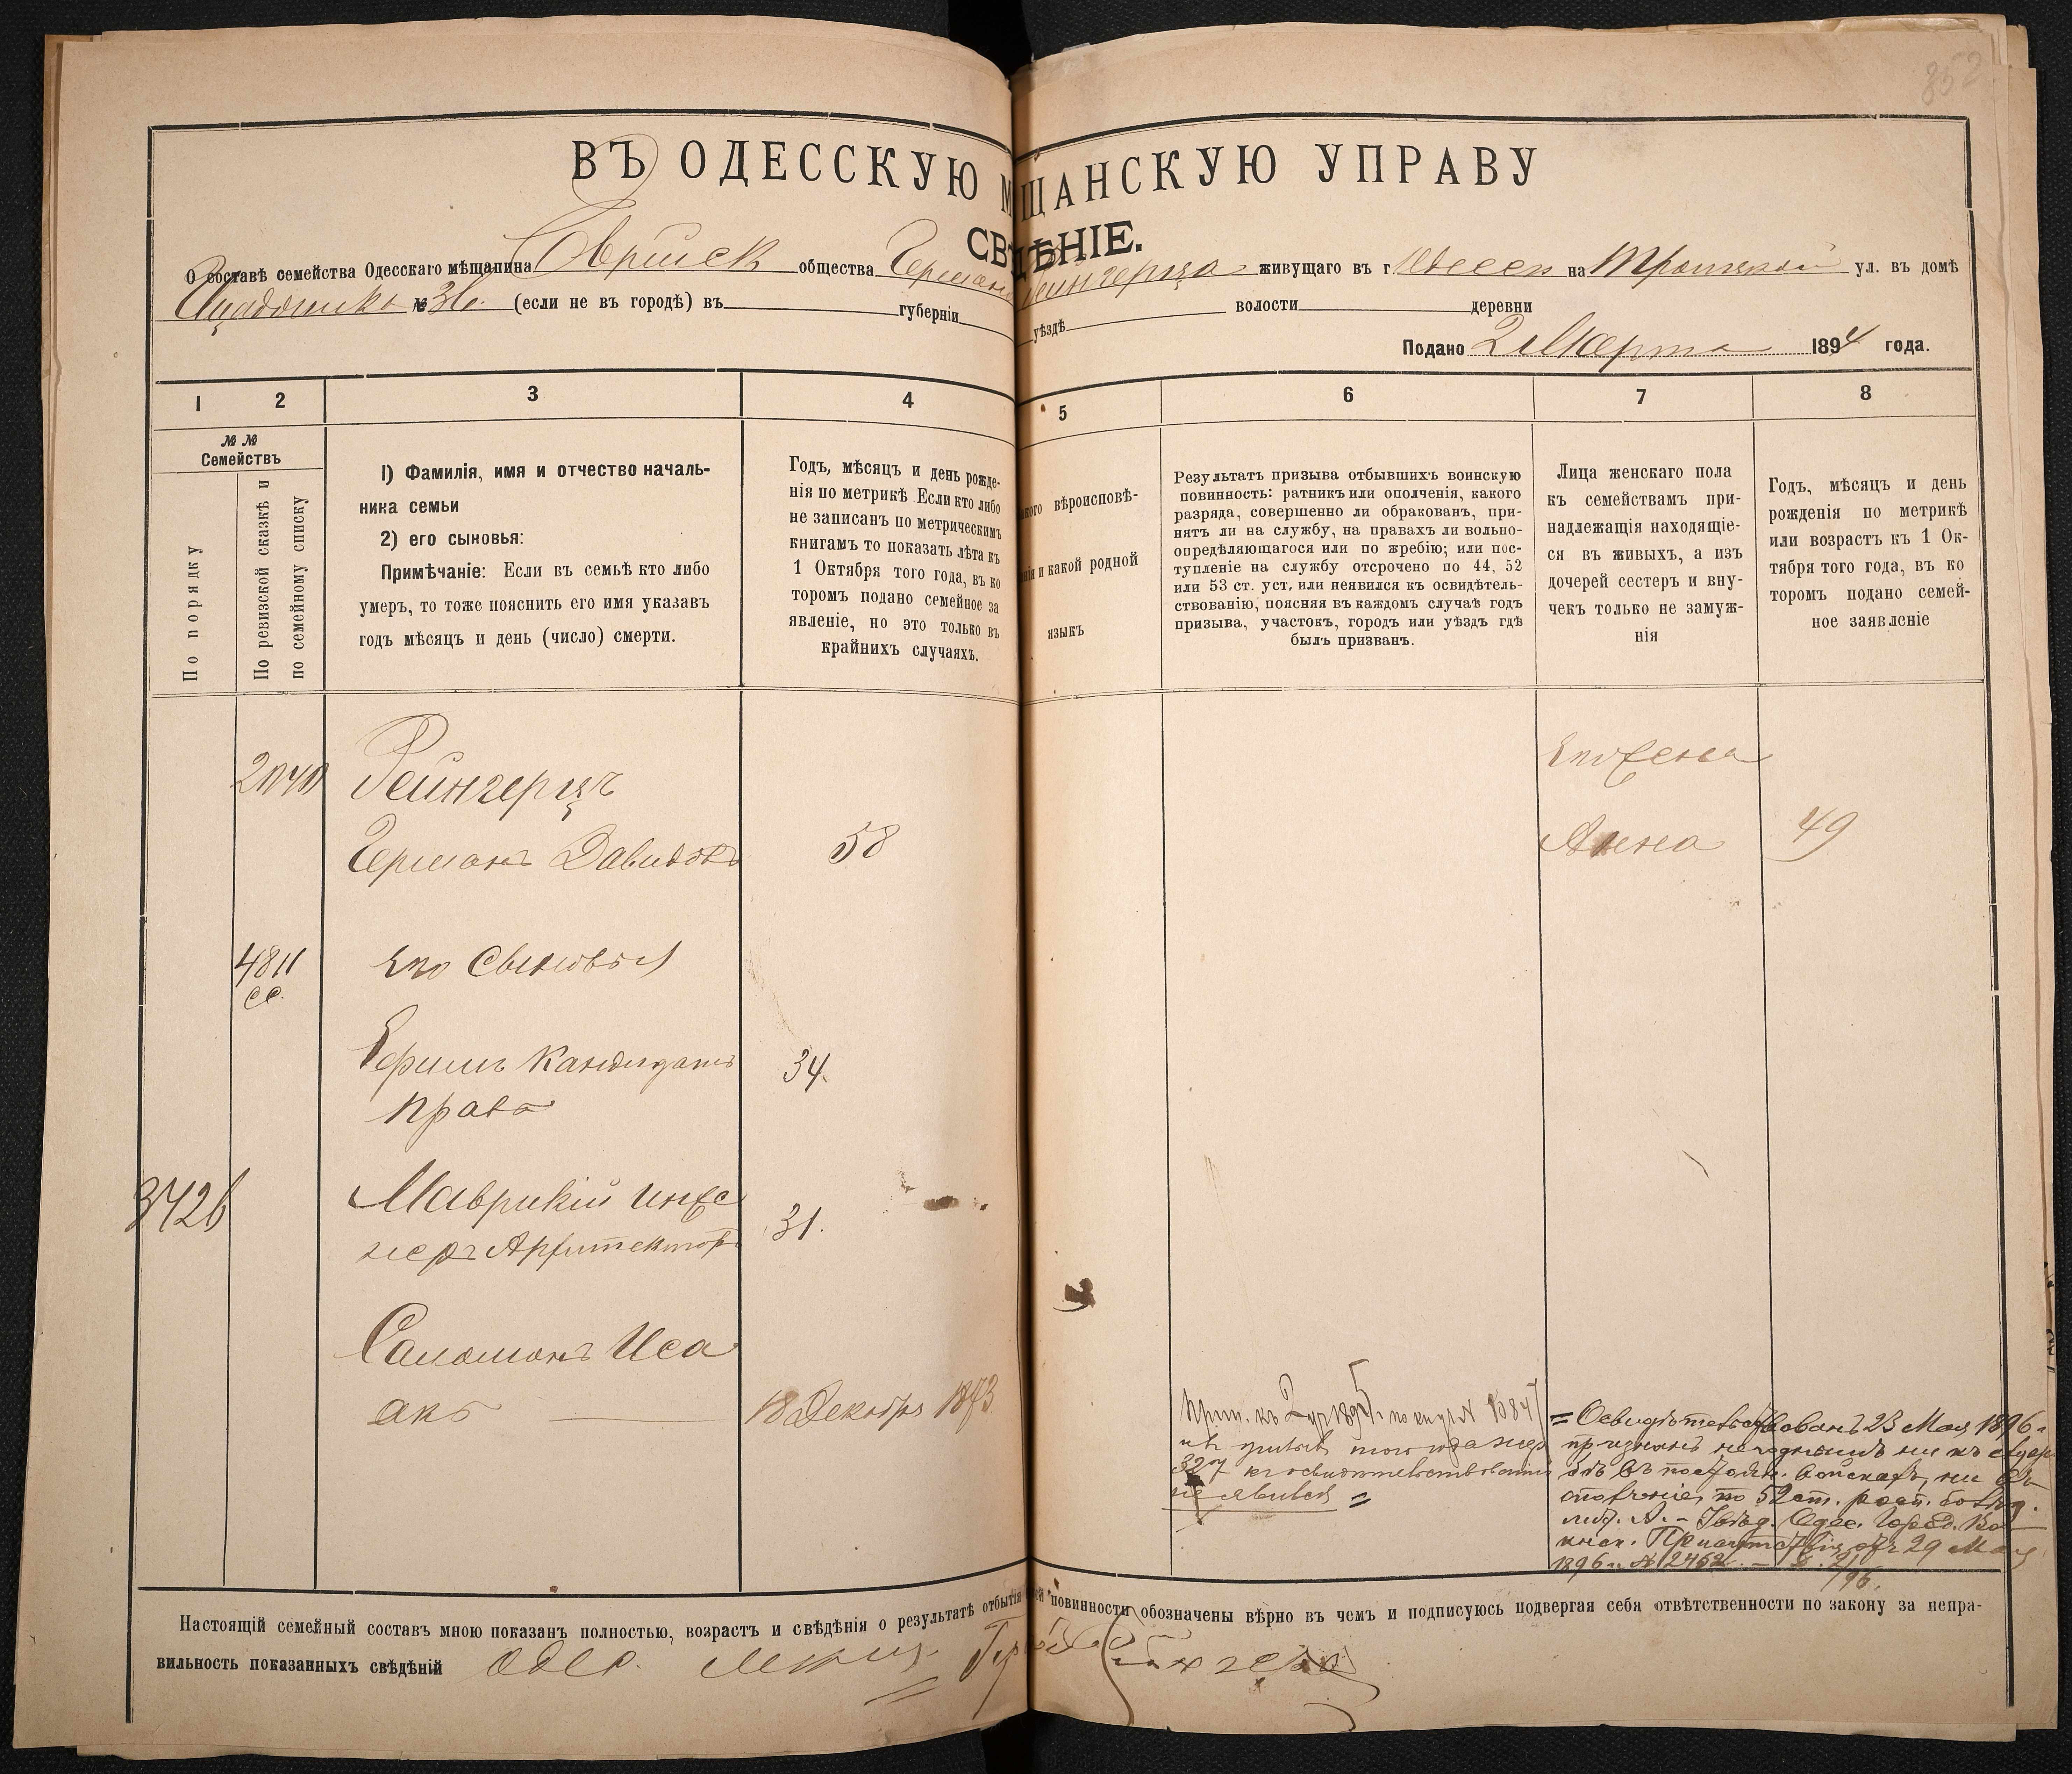 852
ВЪ ОДЕССКУЮ М ЩАНСКУЮ УПРАВУ
СВ ДѢНІЕ.
О составѣ семейства Одесскаго мѣщанина Еврейск общества Герман Рейнгерца живущаго въ г Одессѣ на Троицкой ул. въ домѣ
№ 36. (если не въ городѣ) въ губерніи уѣздѣ волости деревни
Подано 2 Марта 1894 года.
1 2 3 4 5 6 7 8
№ №
Семействъ
По порядку
По ревизской сказкѣ и
по семейному списку
1) Фамилія, имя и отчество началь-
ника семьи
2) его сыновья:
Примѣчаніе: Если въ семьѣ кто либо
умеръ, то тоже пояснить его имя указавъ
годъ мѣсяцъ и день (число) смерти.
Годъ, мѣсяцъ и день рожде-
нія по метрикѣ Если кто либо
не записанъ по метрическимъ
книгамъ то показать лѣта къ
1 Октября того года, въ ко
торомъ подано семейное за
явленіе, но это только въ
крайнихъ случаяхъ.
акого вѣроисповѣ-
анія и какой родной
языкъ
Результатъ призыва отбывшихъ воинскую
повинность: ратникъ или ополченія, какого
разряда, совершенно ли обракованъ, при-
нятъ ли на службу, на правахъ ли вольно-
опредѣляющагося или по жребію; или пос-
тупленіе на службу отсрочено по 44, 52
или 53 ст. уст, или неявился къ освидѣтель-
ствованію, поясняя въ каждомъ случаѣ годъ
призыва, участокъ, городъ или уѣздъ гдѣ
былъ призванъ.
Лица женскаго пола
къ семействамъ при-
надлежащія находящіе-
ся въ живыхъ, а изъ
дочерей сестеръ и вну-
чекъ только не замуж-
нія
Годъ, мѣсяцъ и день
рожденія по метрикѣ
или возрастъ къ 1 Ок-
тября того года, въ ко
торомъ подано семей-
ное заявленіе
2040 Рейнгерцъ
его жена
Германъ Давидовъ 58 Анна 49
4811 его сыновья
сс.
Ефимъ Кандидатъ 34.
права
3426 Маврикій инже
неръ Архитекторъ 31.
Саломонъ Иса
акъ 18 Декабря 1873
Приз. къ 2 уч 1895 г. по сп уч № 1084
327 къ освидѣтельствованію
не явился =
= Освидѣтельствованъ 23 Мая 1896 г
признанъ негоднымъ ни къ служ
бѣ въ постоян. войскахъ, ни въ
ополченіе, по 52 ст. росп. болѣзн.
лит. А. - Увѣд. Одес. Город. Во
инск. Присутствія отъ 29 Мая
1896 г. № 2462
Настоящій семейный составъ мною показанъ полностью, возрастъ и свѣдѣнія о результатѣ отбытія ей повинности обозначены вѣрно въ чемъ и подписуюсь подвергая себя отвѣтственности по закону за непра-
вильность показанныхъ свѣдѣній Одес.